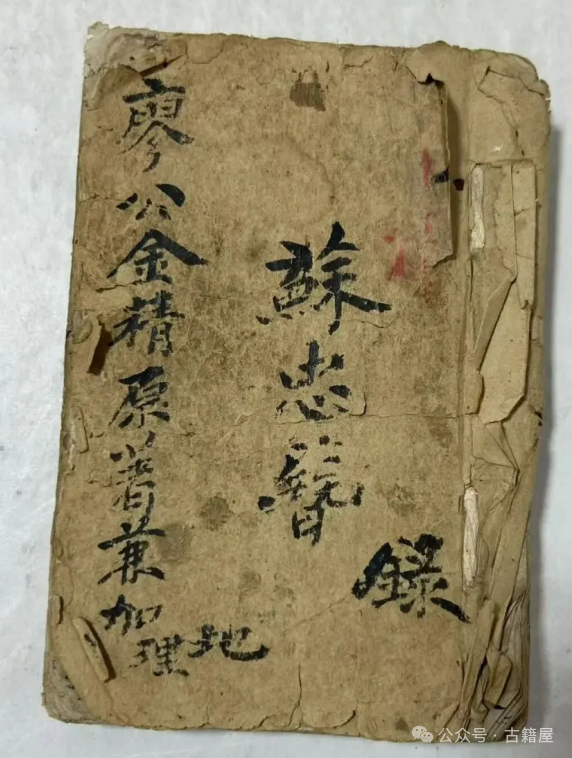 蘇忠簪
錄
廖公金精原著兼加地理
公众号·古籍屋